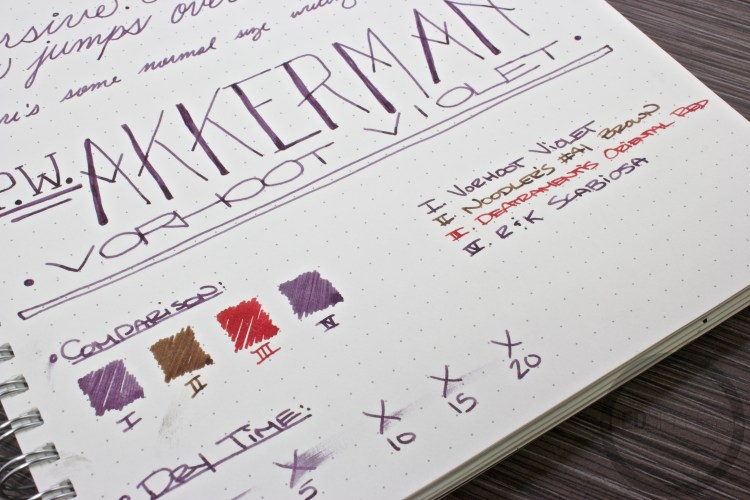 rsive.
jumps over
some normal size writing
P.W. AKKERMAN
VORHOOT VIOLET
I. VORHOOT VIOLET
II. NOODLER'S #41 BROWN
III. DEATRAMENT'S ORIENTAL RED
IV. R&K SCABIOSA
COMPARISON:
I II III IV
DRY TIME:
5 10 15 20